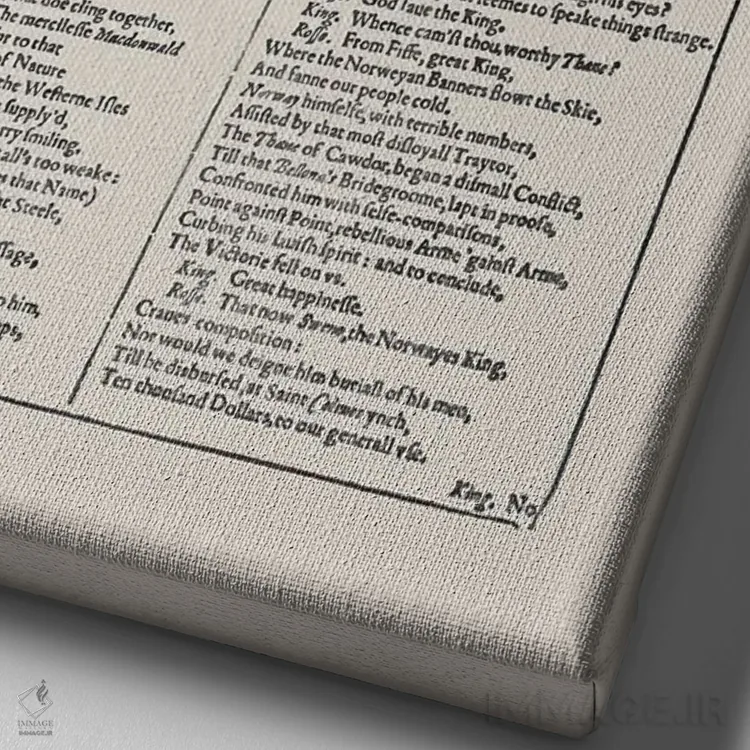 doe cling together,
The mercilesse Macdonwald
to that
of Nature
the Westerne Isles
supply'd,
smiling,
all's too weake:
that Name)
Steele,
him,
his eyes?
seemes to speake things ſtrange.
God ſaue the King.
King. Whence cam'ſt thou, worthy Thane?
Roſſe. From Fiffe, great King,
Where the Norweyan Banners flowt the Skie,
And fanne our people cold.
Norway himſelfe, with terrible numbers,
Aſſiſted by that moſt diſloyall Traytor,
The Thane of Cawdor, began a diſmall Conflict,
Till that Bellona's Bridegroome, lapt in proofe,
Confronted him with ſelfe-compariſons,
Point againſt Point, rebellious Arme 'gainſt Arme,
Curbing his lauiſh ſpirit: and to conclude,
The Victorie fell on vs.
King. Great happineſſe.
Roſſe. That now Sweno, the Norwayes King,
Craues compoſition:
Nor would we deigne him buriall of his men,
Till he disburſed, at Saint Colmes ynch,
Ten thouſand Dollars, to our generall vſe.
King. No
IMMAGE
IMMAGE.IR
IMMAGE.IR